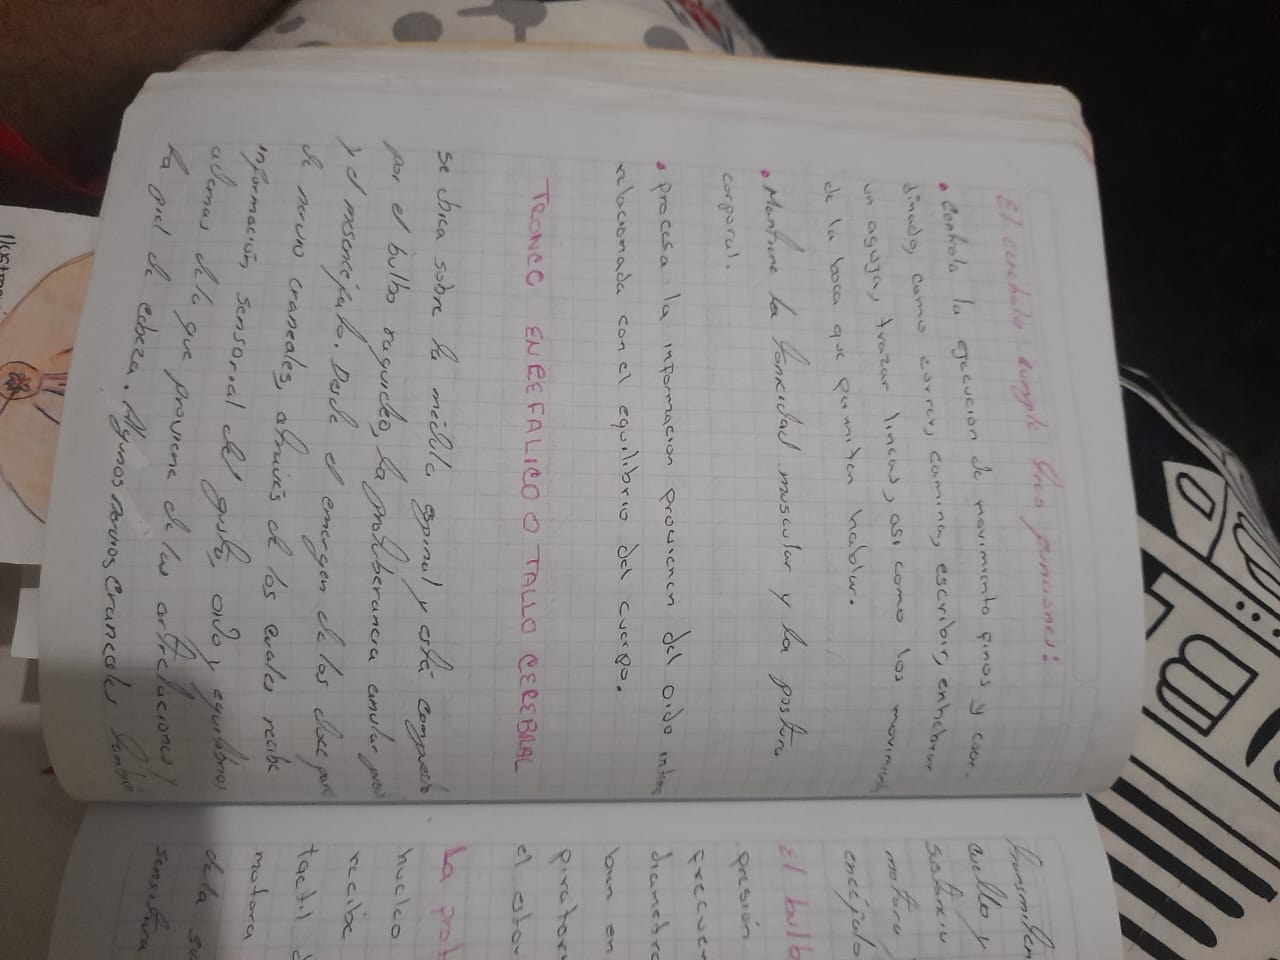 El cerebelo cumple tres funciones:
• Controla la ejecucion de movimiento finos y coor-
dinado, como correr, caminar, escribir, enhebrar
un aguja, trazar lineas, asi como los movimient
de la boca que permiten hablar.
• Mantiene la tonicidad muscular y la postura
corporal.
• procesa la informacion provienen del oido interno
relacionada con el equilibrio del cuerpo.
TRONCO ENCEFALICO O TALLO CEREBRAL
se ubica sobre la médula espinal y está compuesto
por el bulbo raquideo, la protuberancia anular
y el mesencéfalo. Desde el emergen de los doce pare
de nervio craneales, através de los cuales recibe
informacion sensorial del gusto, oido y equilibrio
ademas de la que proviene de las articulaciones y
la piel de cabeza. Algunos nervios craneales tambié
transmiten
cuello y
motora
encéfalo
El bulb
presión
frecuen
diametro
ban en
piratori
el estor
La prot
nucleo
recibe
tactil
motora
de la su
sensitiva
Ilustraci